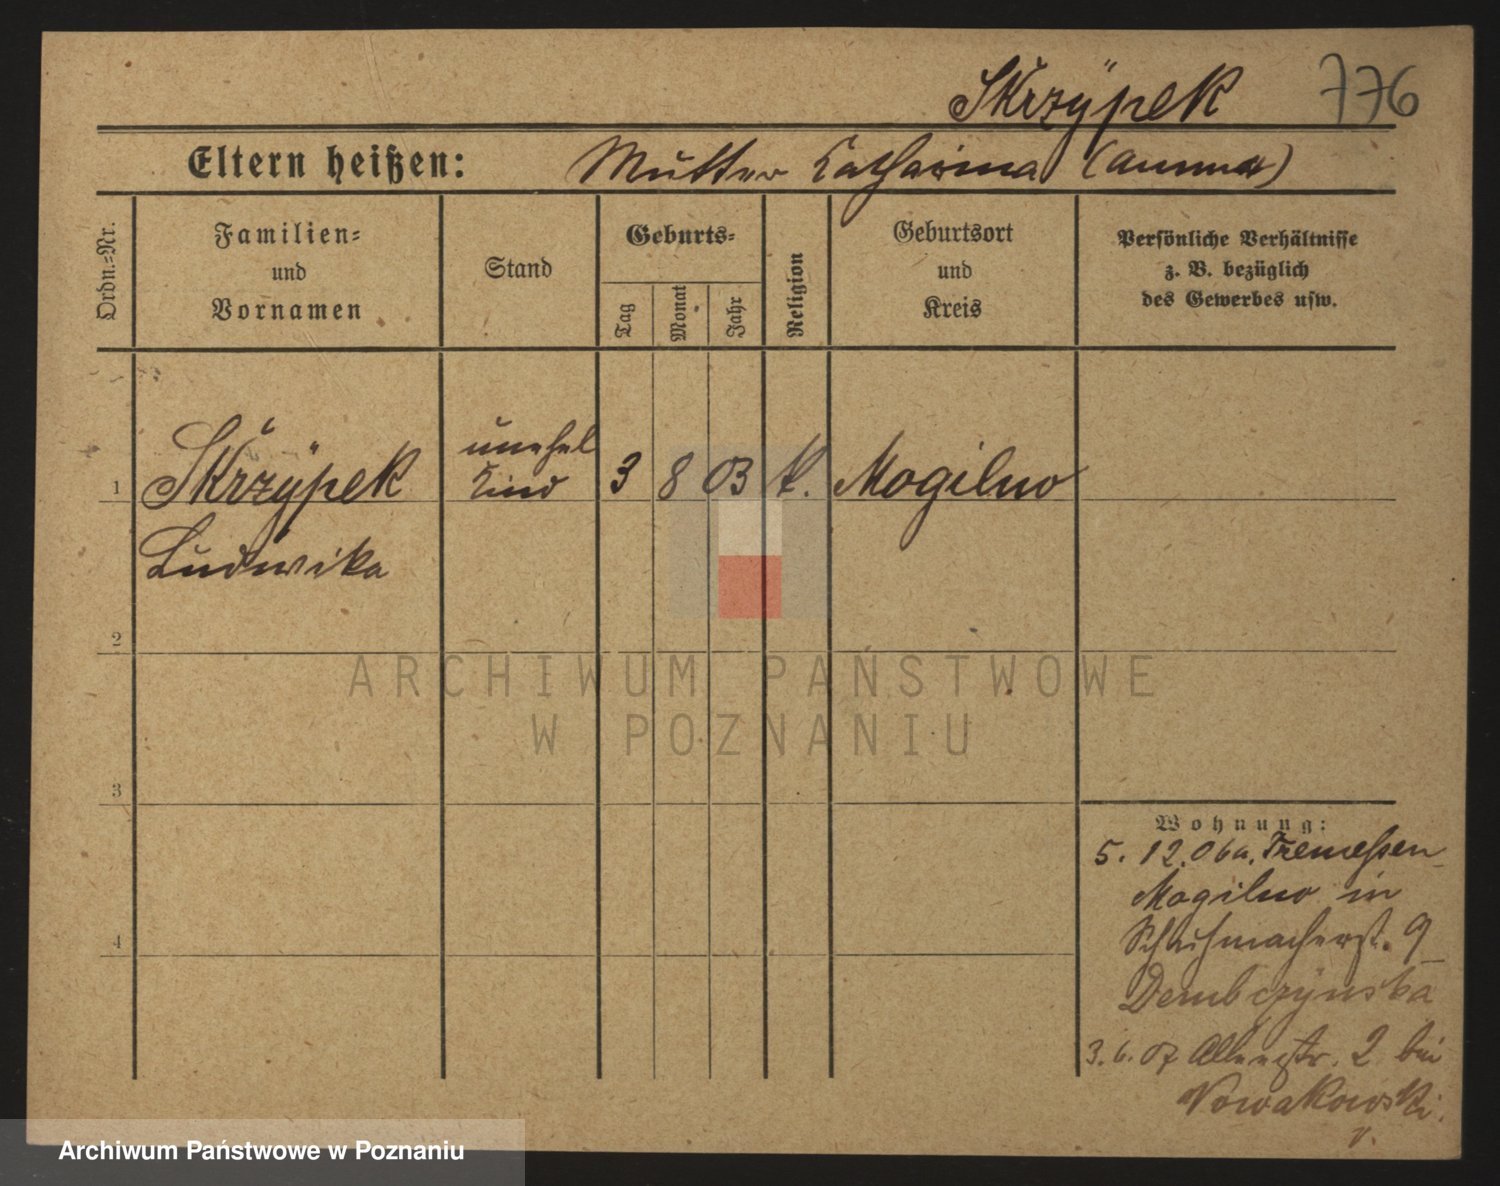 Skrzÿpek 776
Eltern heißen: Mutter Katharina (Amma)
Ordn.-Nr.
Familien-
und
Vornamen
Stand
Geburts-
Tag
Monat
Jahr
Religion
Geburtsort
und
Kreis
Persönliche Verhältnisse
z. B. bezüglich
des Gewerbes usw.
1 Skrzÿpek unehel Kind 3 8 03 k. Mogilno
Ludwika
2
3
4
Wohnung:
5. 12. 06 a. Tremessen
Mogilno in
Schuhmacherst. 9
Dembczÿnska
3. 6. 07 Alleestr. 2 bei
Nowakowski.
v.
ARCHIWUM PAŃSTWOWE
W POZNANIU
Archiwum Państwowe w Poznaniu